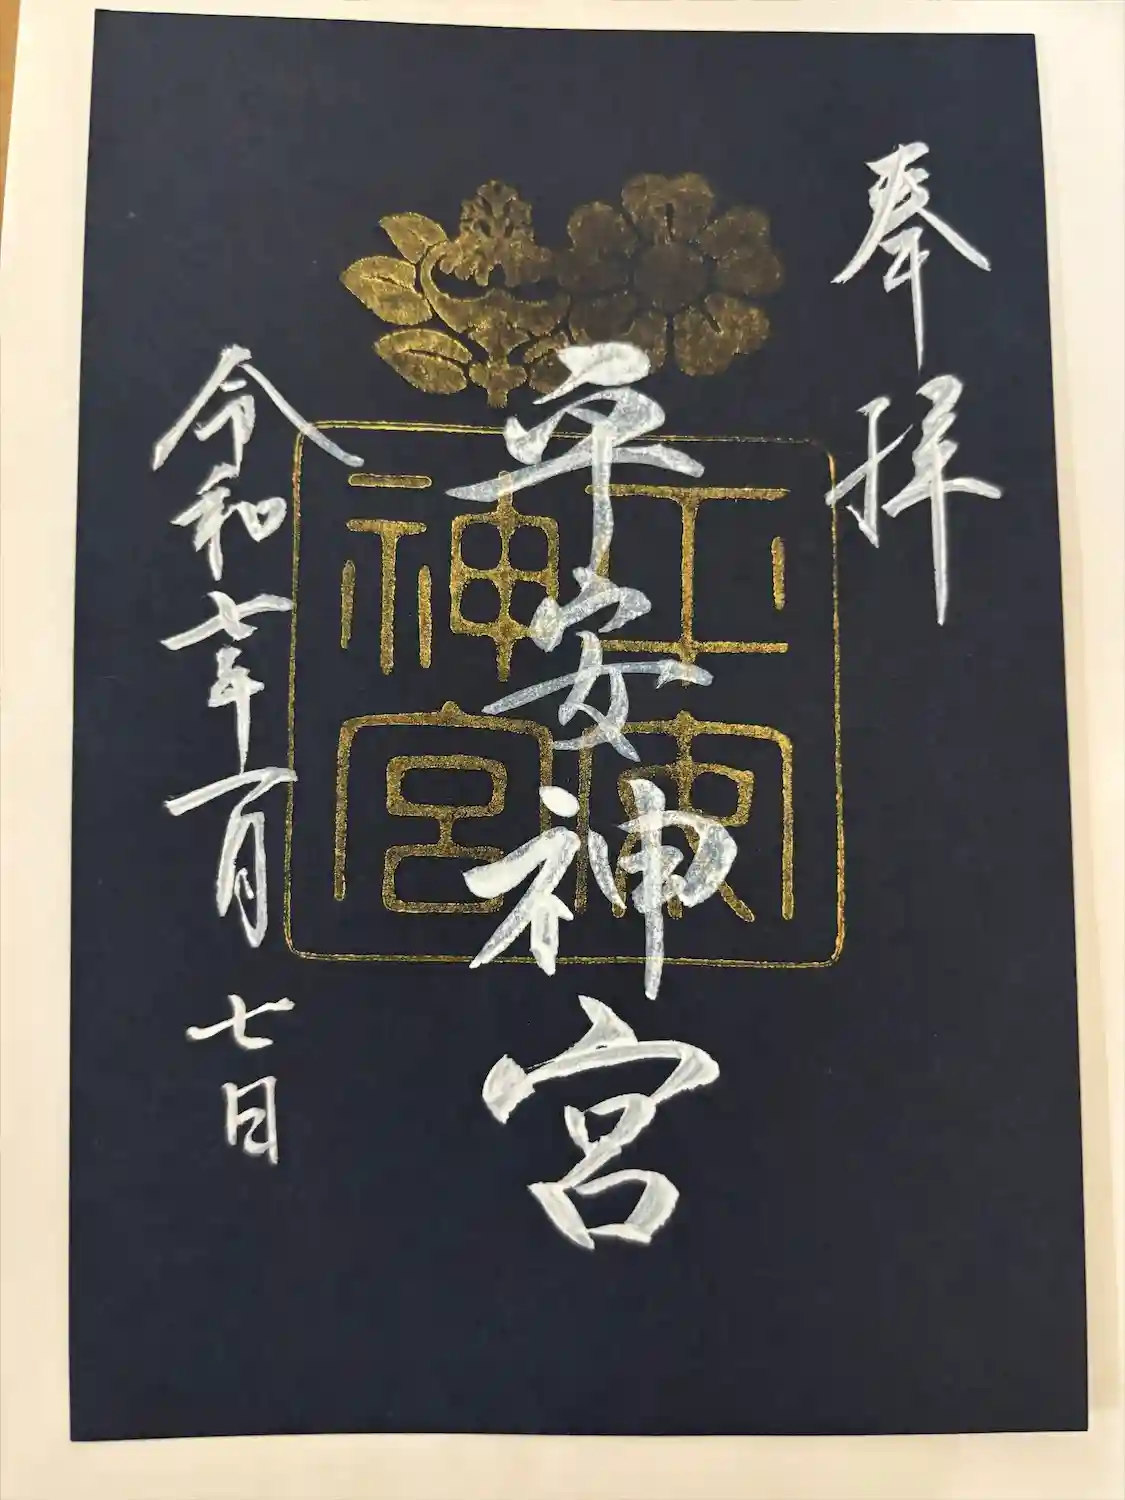 奉拝
平安神宮
平安
神宮
令和七年一月七日